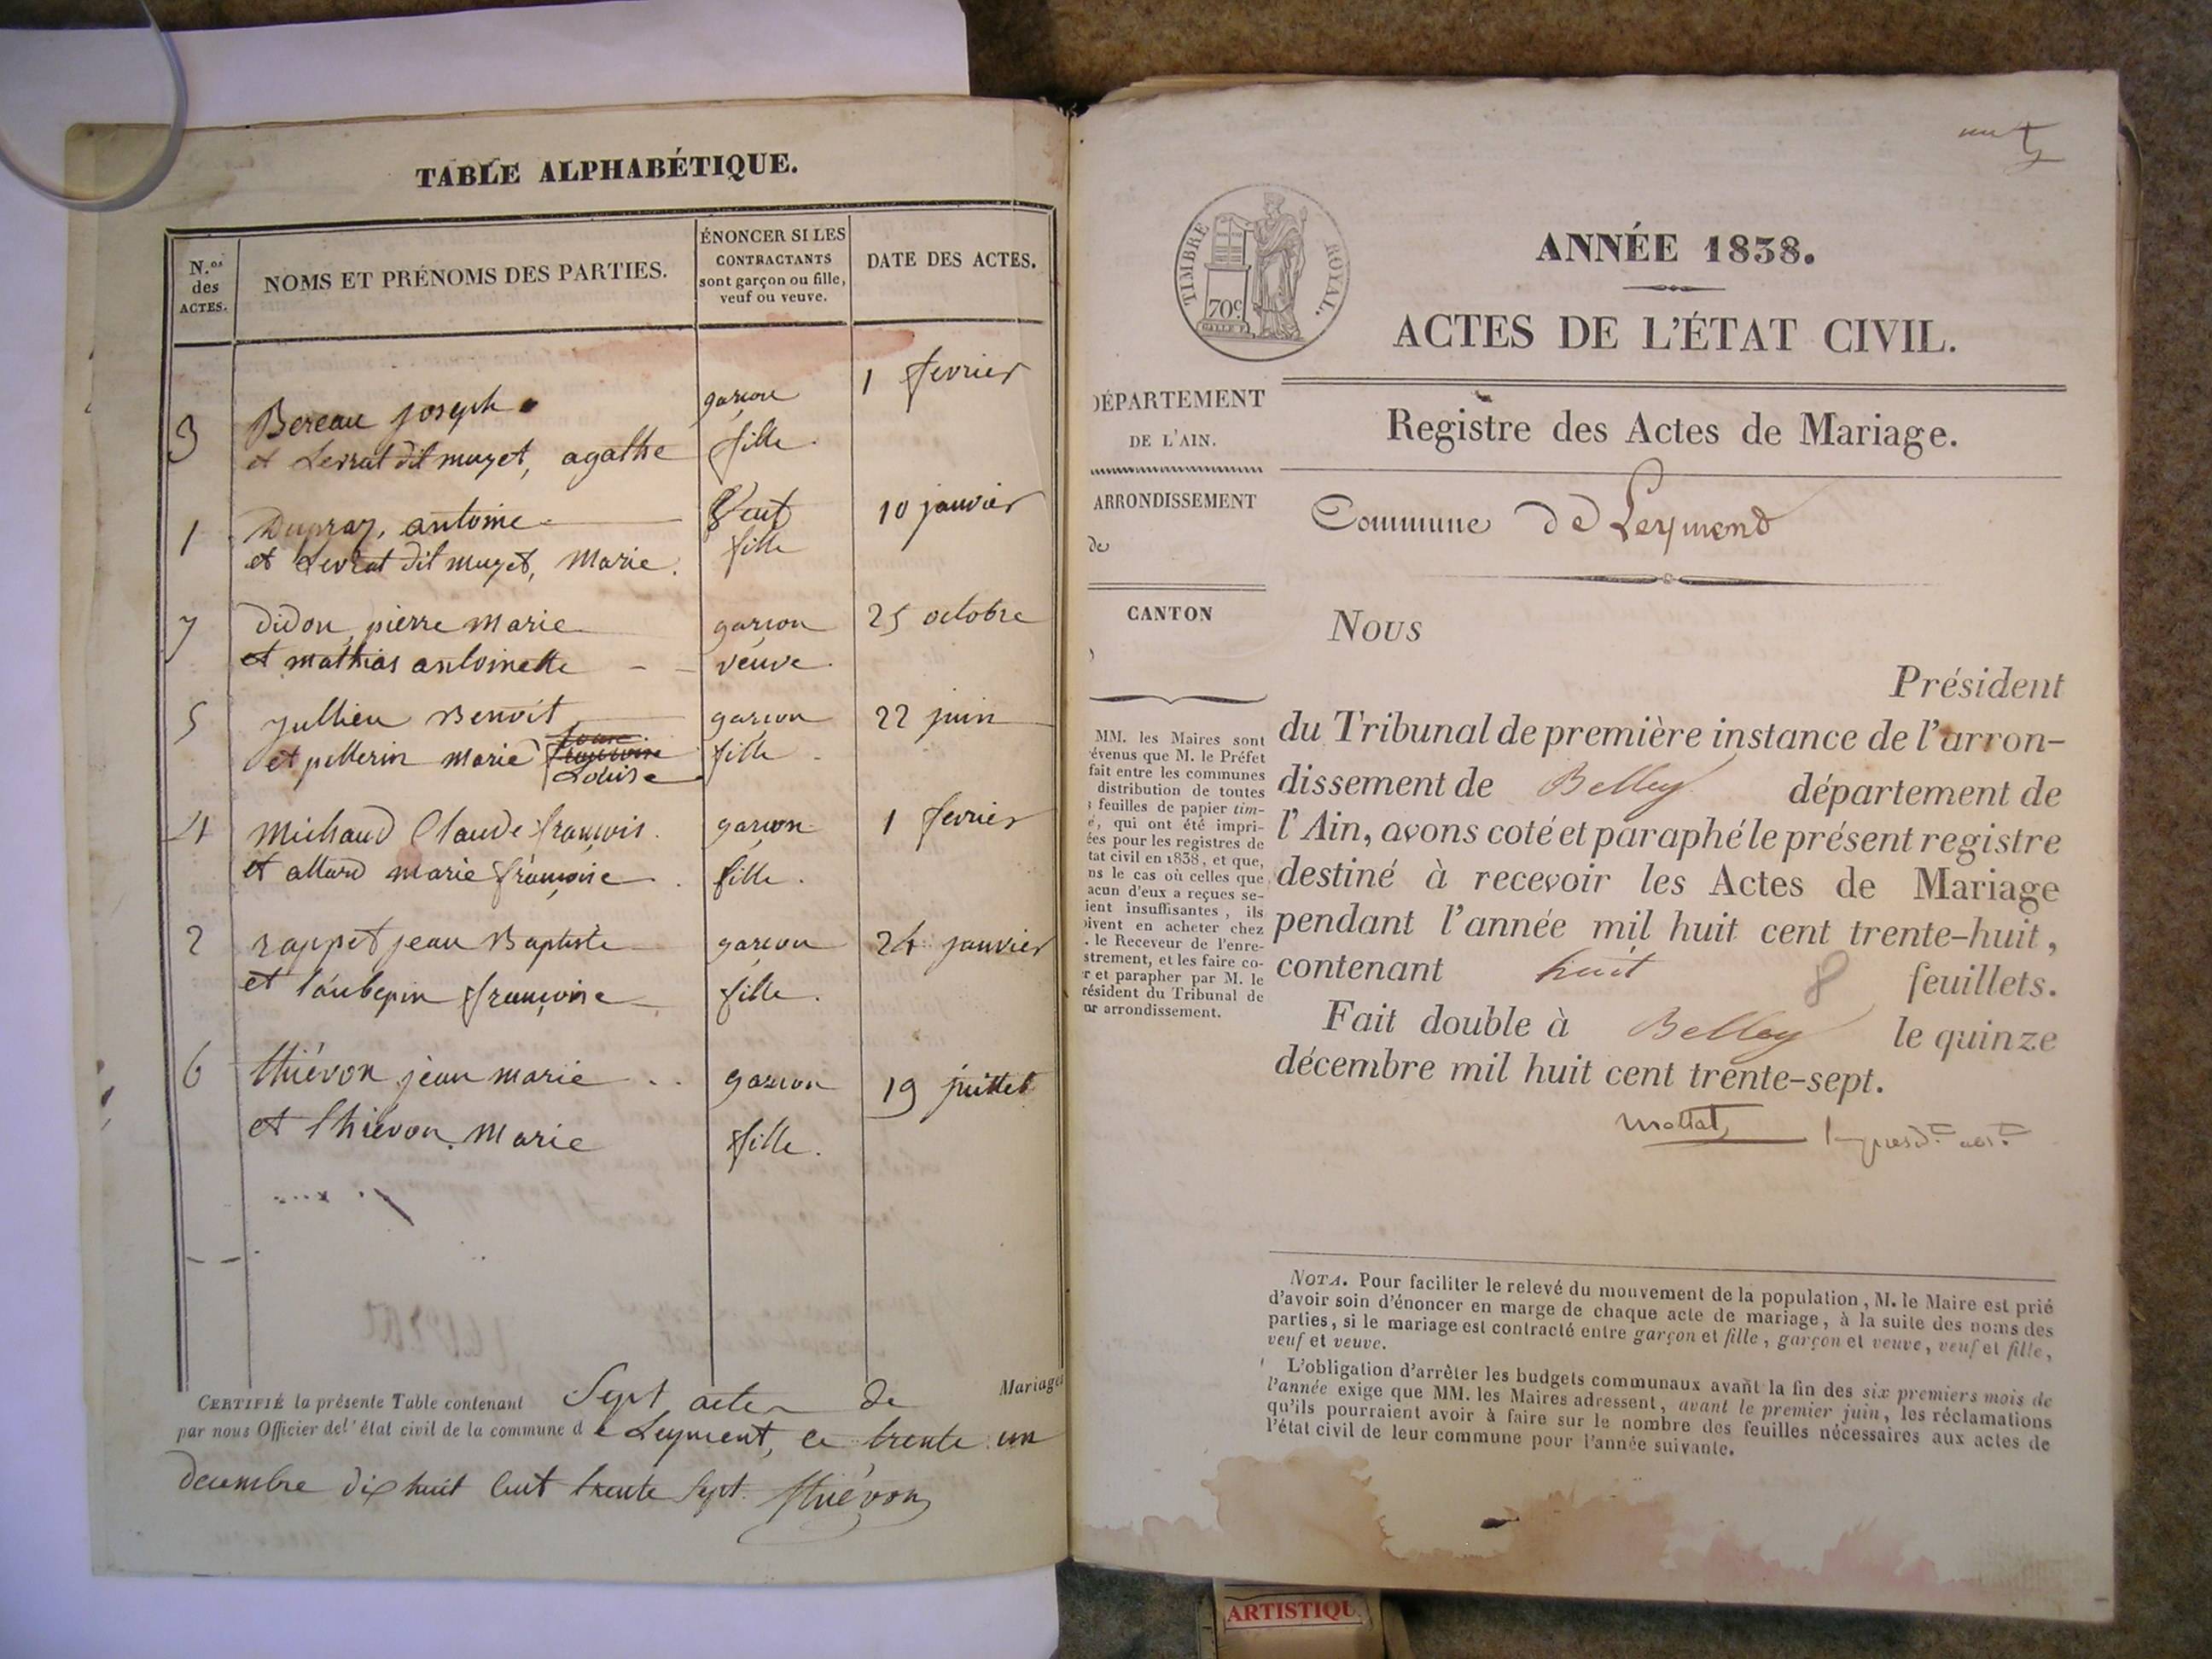 TABLE ALPHABÉTIQUE.
N.os des ACTES.
NOMS ET PRÉNOMS DES PARTIES.
ÉNONCER SI LES CONTRACTANTS sont garçon ou fille, veuf ou veuve.
DATE DES ACTES.
3 Bereau joseph garçon 1 fevrier
et Levrat dit muzet, agathe fille.
1 Dupraz, antoine Veuf 10 janvier
et Levrat dit muzet, Marie. fille
7 didon pierre marie garcon 25 octobre
et mathias antoinette - - veuve.
5 Jullien Benoit garcon 22 juin
et pellerin marie Louise fille
4 Michaud Claude françois. garcon 1 fevrier
et allard marie françoise. fille.
2 rappet jean Baptiste garcon 24 janvier
et laubepin françoise fille.
6 thiévon jean marie .. garcon 19 juillet
et thiévon Marie fille.
CERTIFIÉ la présente Table contenant Sept actes de Mariages
par nous Officier de l'état civil de la commune de Leyment, ce trente un
decembre dix huit cent trente sept. thiévon
TIMBRE ROYAL.
70c
ANNÉE 1838.
ACTES DE L'ÉTAT CIVIL.
DÉPARTEMENT
DE L'AIN.
ARRONDISSEMENT
de
CANTON
Registre des Actes de Mariage.
Commune de Leymend
MM. les Maires sont
évenus que M. le Préfet
fait entre les communes
distribution de toutes
s feuilles de papier tim-
é, qui ont été impri-
ées pour les registres de
tat civil en 1838, et que,
ns le cas où celles que
acun d'eux a reçues se-
ient insuffisantes, ils
ivent en acheter chez
. le Receveur de l'enre-
strement, et les faire co-
r et parapher par M. le
résident du Tribunal de
ur arrondissement.
Nous
Président
du Tribunal de première instance de l'arron-
dissement de Belley département de
l'Ain, avons coté et paraphé le présent registre
destiné à recevoir les Actes de Mariage
pendant l'année mil huit cent trente-huit,
contenant huit 8 feuillets.
Fait double à Belley le quinze
décembre mil huit cent trente-sept.
NOTA. Pour faciliter le relevé du mouvement de la population, M. le Maire est prié
d'avoir soin d'énoncer en marge de chaque acte de mariage, à la suite des noms des
parties, si le mariage est contracté entre garçon et fille, garçon et veuve, veuf et fille,
veuf et veuve.
L'obligation d'arrêter les budgets communaux avant la fin des six premiers mois de
l'année exige que MM. les Maires adressent, avant le premier juin, les réclamations
qu'ils pourraient avoir à faire sur le nombre des feuilles nécessaires aux actes de
l'état civil de leur commune pour l'année suivante.
ARTISTIQU